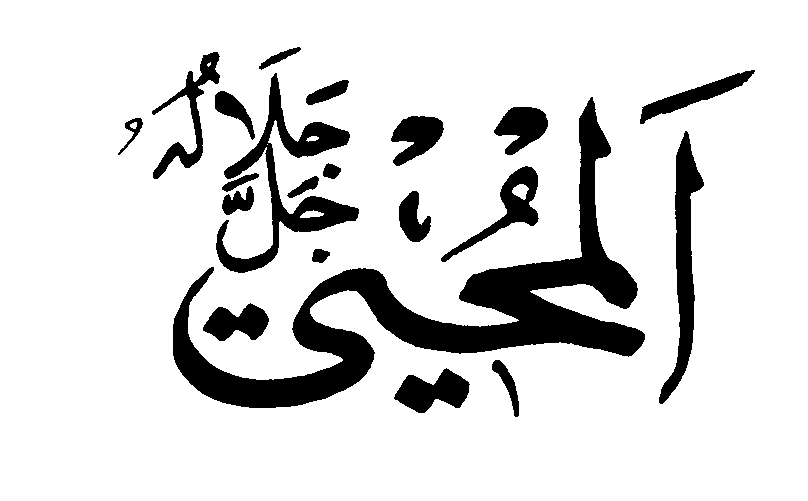 اَلْمُحْيِيُ
جَلَّ
جَلَالُهُ